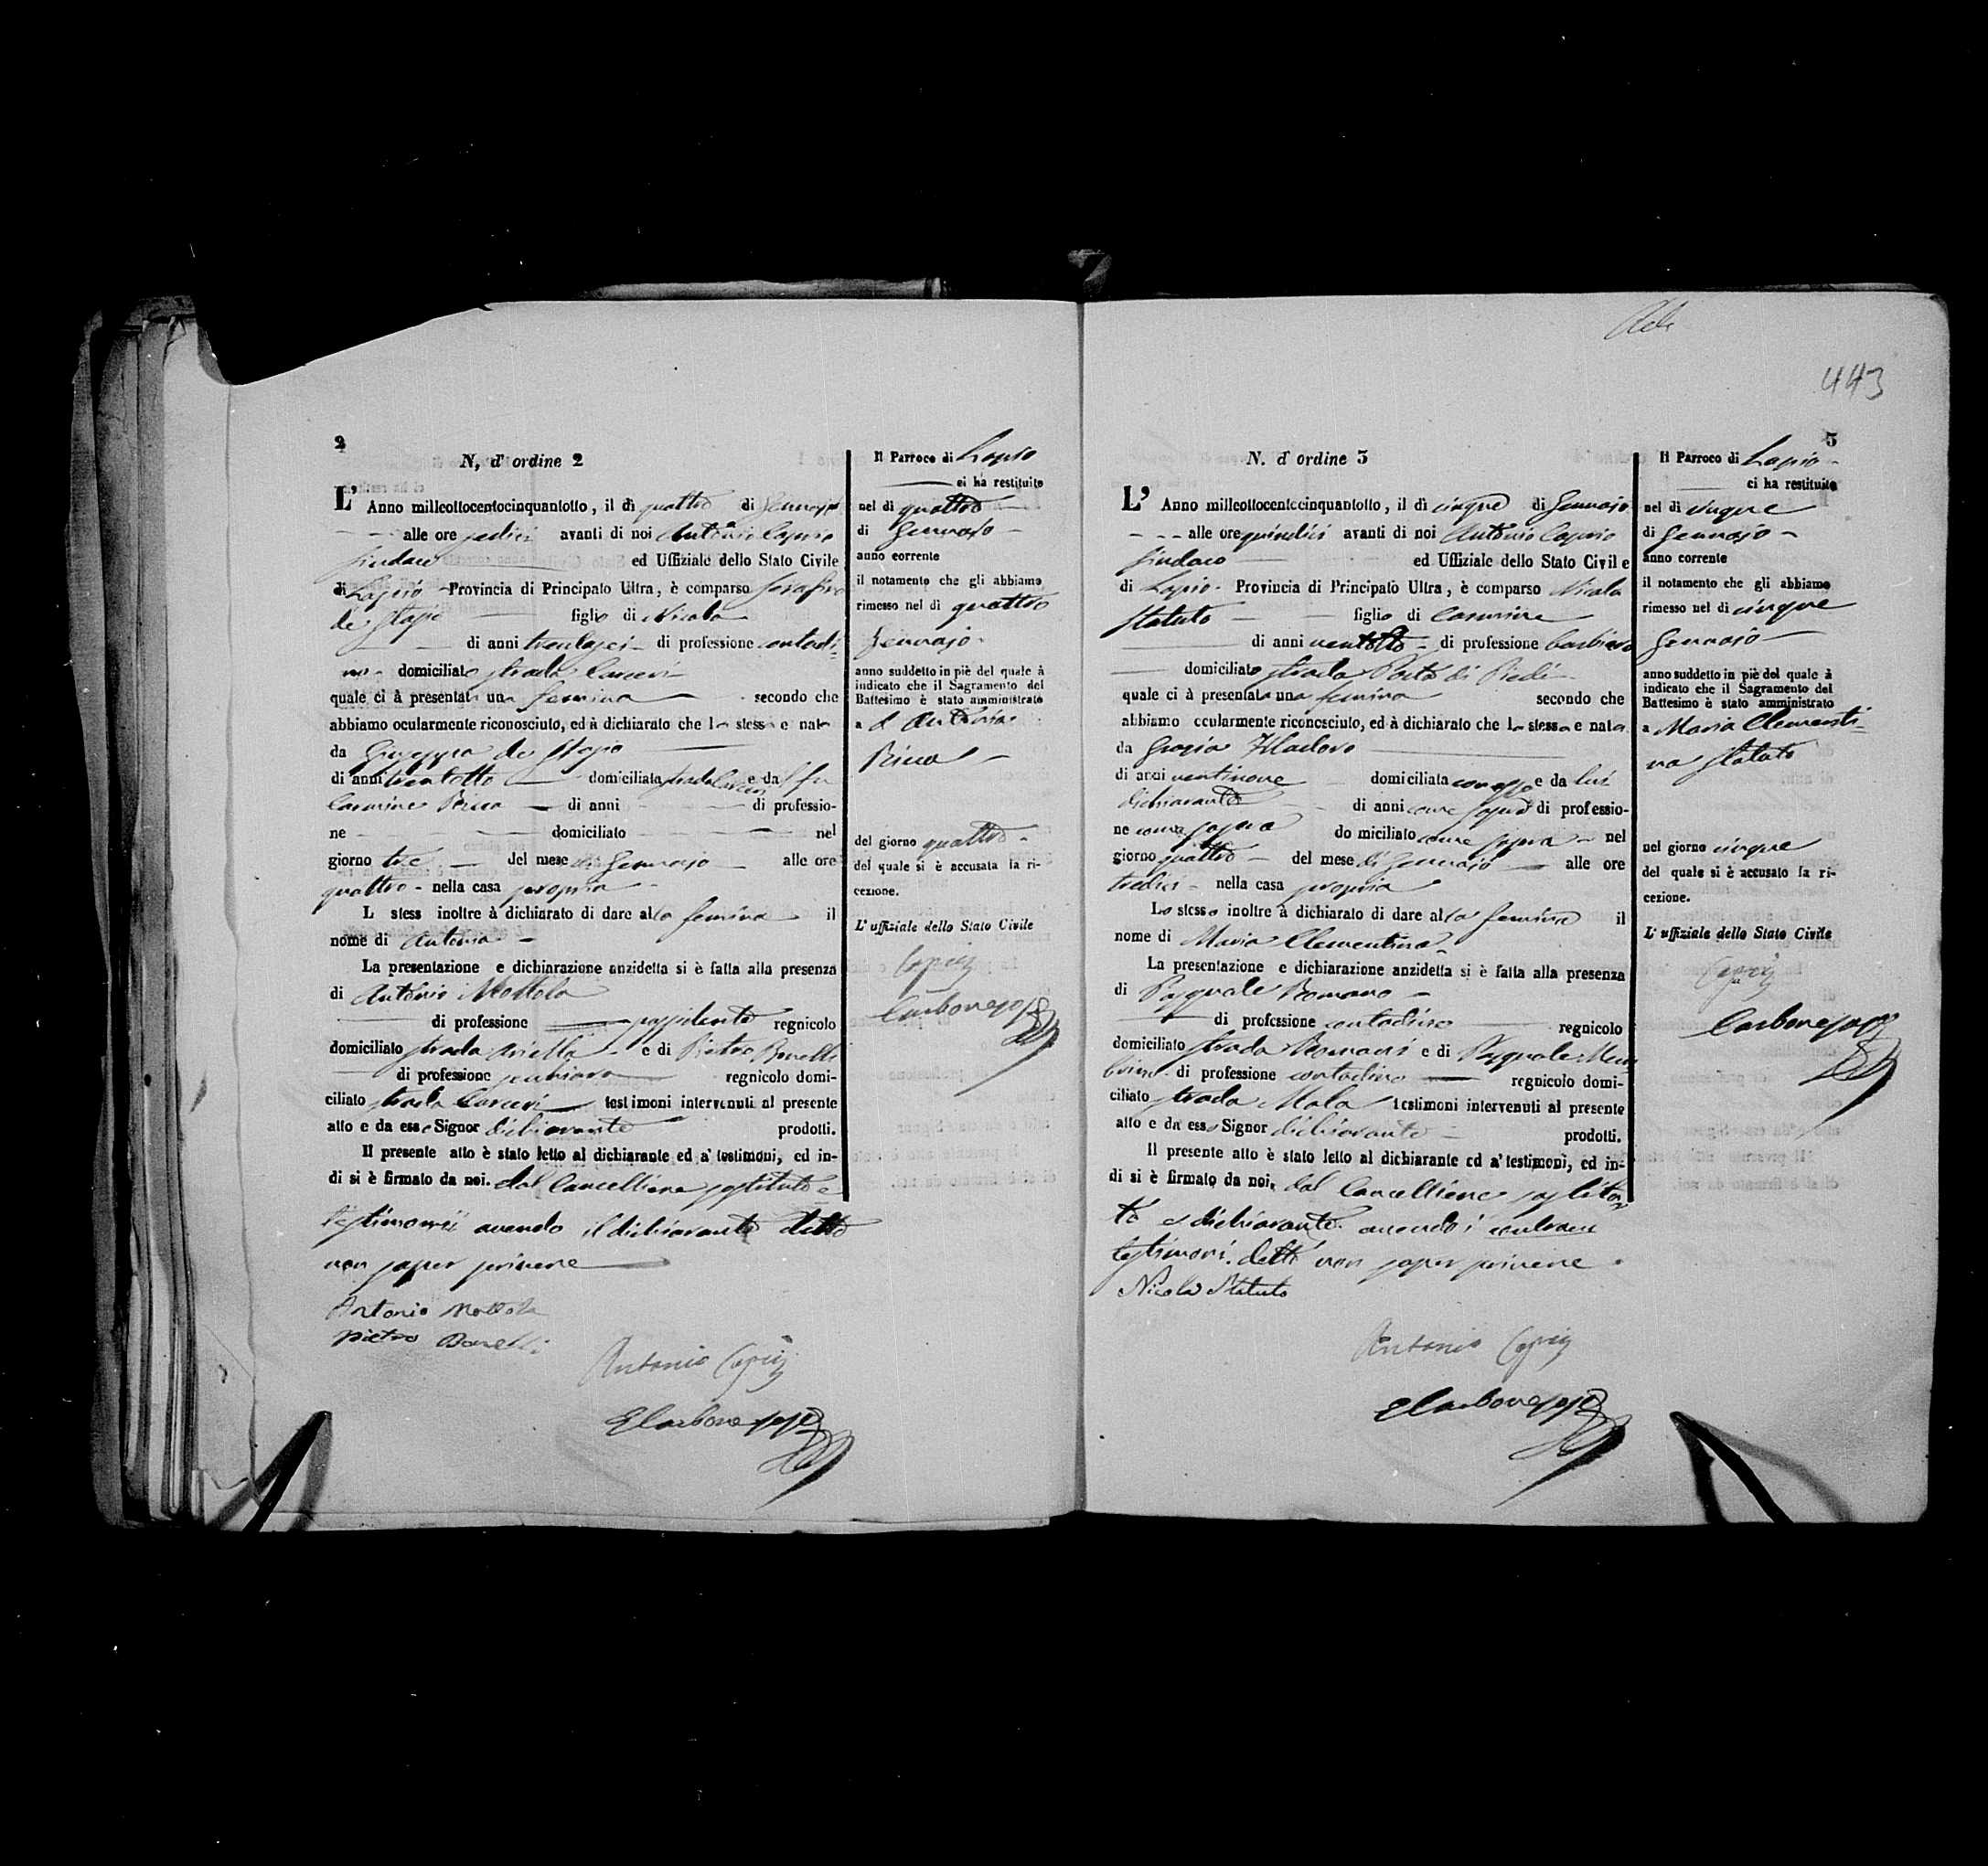 2
N, d' ordine 2
L' Anno milleottocentocinquantotto, il dì quattro di Gennajo
alle ore sedici avanti di noi Antonio Caprio
Sindaco ed Uffiziale dello Stato Civile
di Lapio Provincia di Principato Ultra, è comparso Serafino
de Stapo figlio di Nicola
di anni trentasei di professione contadi-
no domiciliato strada Carceri
quale ci à presentata una femina secondo che
abbiamo ocularmente riconosciuto, ed à dichiarato che la stessa e nata
da Giuseppa de Stapo
di anni trentotto domiciliata strada Carceri e da fu
Carmine di anni di professio-
ne domiciliato nel
giorno tre del mese di Gennajo alle ore
quattro nella casa propria
L stess inoltre à dichiarato di dare alla femina il
nome di Antonia
La presentazione e dichiarazione anzidetta si è fatta alla presenza
di Antonio Mottola
di professione possidente regnicolo
domiciliato strada Ariella e di Pietro Bonelli
di professione regnicolo domi-
ciliato strada Carceri testimoni intervenuti al presente
atto e da esso Signor dichiarante prodotti.
Il presente atto è stato letto al dichiarante ed a' testimoni, ed in-
di si è firmato da noi, dal Cancelliere sostituto e
testimonii avendo il dichiarante detto
non saper scrivere
Antonio Mottola
Pietro Bonelli
Antonio Caprio
Il Parroco di Lapio
ci ha restituito
nel di quattro
di Gennajo
anno corrente
il notamento che gli abbiamo
rimesso nel di quattro
Gennajo
anno suddetto in piè del quale à
indicato che il Sagramento del
Battesimo è stato amministrato
a Antonia
del giorno quattro
del quale si è accusata la ri-
cezione.
L' uffiziale dello Stato Civile
Caprio
443
3
N. d' ordine 3
L' Anno milleottocentocinquantotto, il dì cinque di Gennajo
alle ore quindici avanti di noi Antonio Caprio
Sindaco ed Uffiziale dello Stato Civile
di Lapio Provincia di Principato Ultra, è comparso Nicola
Statuto figlio di Carmine
di anni ventotto di professione barbiere
domiciliato strada Porta di Piedi
quale ci à presentata una femina secondo che
abbiamo ocularmente riconosciuto, ed à dichiarato che la stessa e nata
da Grazia
di anni ventinove domiciliata come sopra e da lui
dichiarante di anni come sopra di professio-
ne come sopra domiciliato come sopra nel
giorno quattro del mese di Gennajo alle ore
tredici nella casa propria
Lo stesso inoltre à dichiarato di dare alla femina il
nome di Maria Clementina
La presentazione e dichiarazione anzidetta si è fatta alla presenza
di Pasquale Romano
di professione contadino regnicolo
domiciliato strada Romani e di Pasquale
di professione contadino regnicolo domi-
ciliato strada Mala testimoni intervenuti al presente
atto e da esso Signor dichiarante prodotti.
Il presente atto è stato letto al dichiarante ed a' testimoni, ed in-
di si è firmato da noi, dal Cancelliere sostitu
to e dichiarante avendo i
testimoni detto non saper scrivere
Nicola Statuto
Antonio Caprio
Il Parroco di Lapio
ci ha restituito
nel di cinque
di Gennajo
anno corrente
il notamento che gli abbiamo
rimesso nel di cinque
Gennajo
anno suddetto in piè del quale à
indicato che il Sagramento del
Battesimo è stato amministrato
a Maria Clementi-
na Statuto
nel giorno cinque
del quale si è accusato la ri-
cezione.
L' uffiziale dello Stato Civile
Caprio